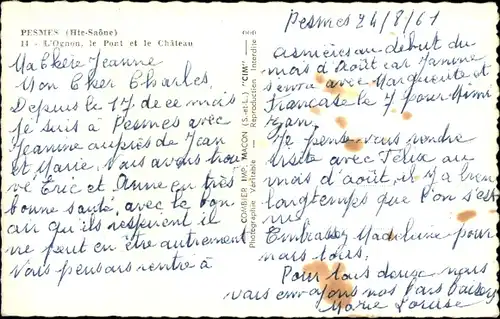 PESMES (Hte-Saône)
11 - L'Ognon, le Pont et le Château
Ma Chère Jeanne
Mon Cher Charles,
Depuis le 17 de ce mois
je suis à Pesmes avec
Jeanine auprès de Jean
et Marie. Nous avons trou
vé Eric et Anne en très
bonne santé, avec le bon
air qu'ils respirent il
ne peut en être autrement
Nous pensons rentré à
COMBIER IMP. MACON (S.-et-L.) "CIM"
Photographie Véritable - Reproduction Interdite
Pesmes 24/8/61
asnières au début du
mois d'Août car Janine
sera avec Marguerite et
le 7 pour Mimi
zan.
Je pense vous rendre
visite avec Félix au
mois d'août, il y a bien
longtemps que l'on s'est
vu
Embrassez Madeleine pour
nous tous.
Pour tous deux nous
vous envoyons nos bons baisers
Marie Louise